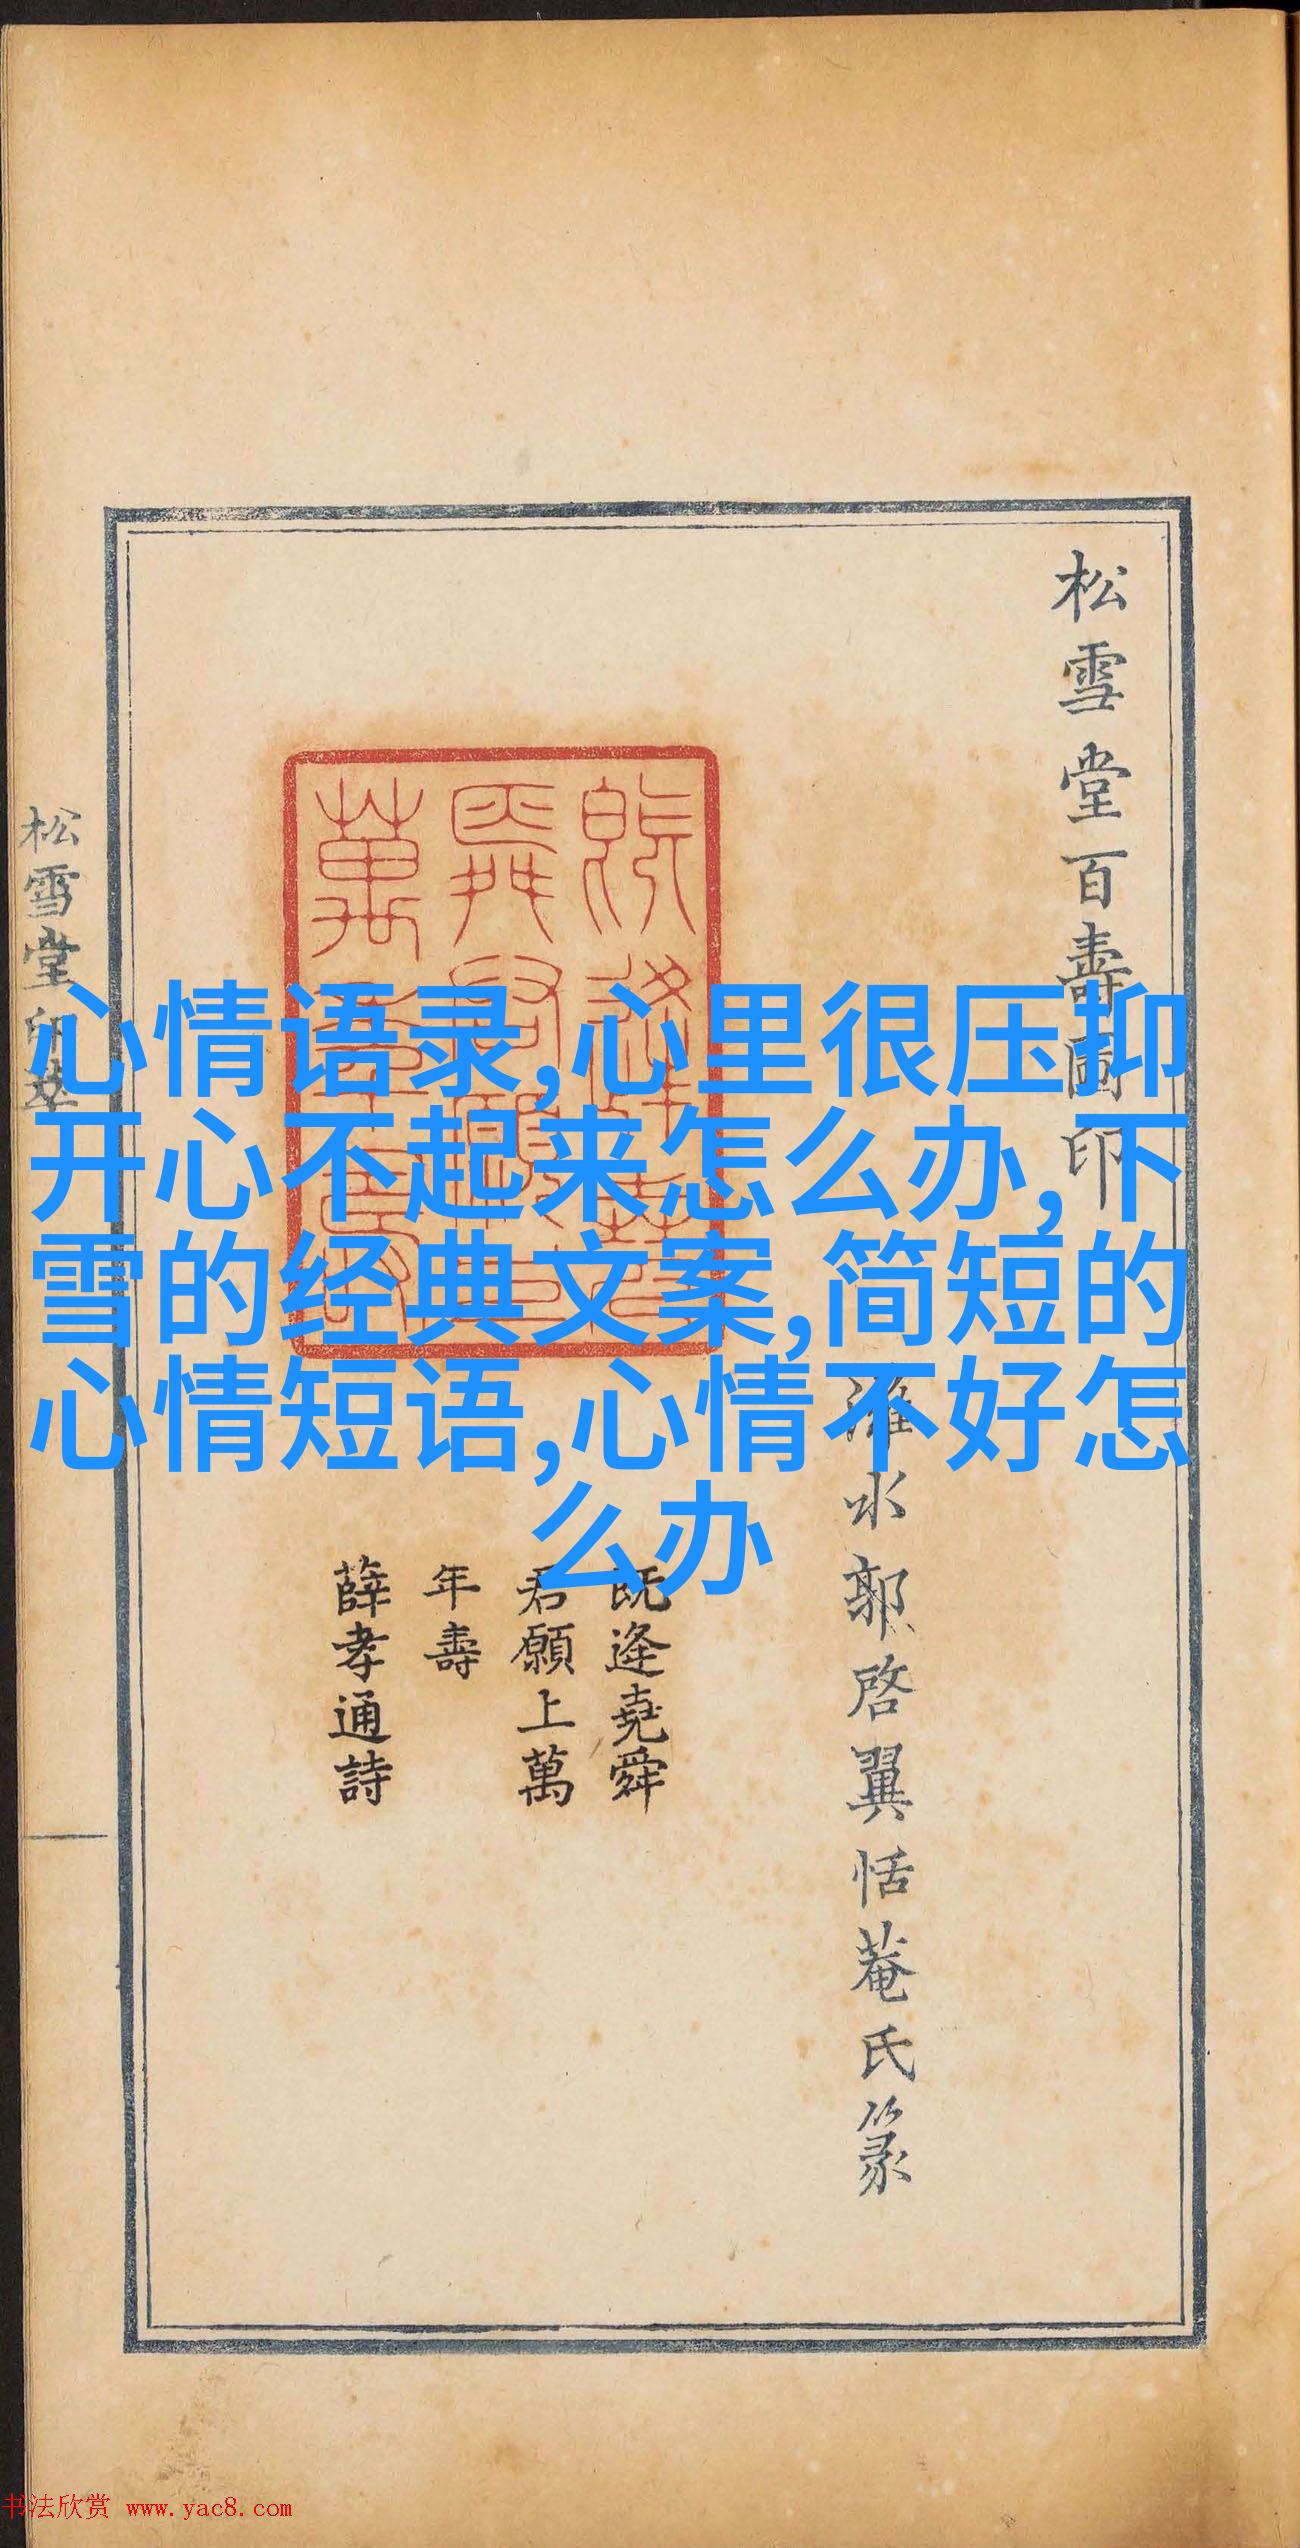 心情语录,心里很压抑
开心不起来怎么办,下
雪的经典文案,简短的
心情短语,心情不好怎
么办
松雪堂百壽圖印
淮水郭啓翼恬菴氏篆
既逢堯舜
君願上萬
年壽
薛孝通詩
松雪堂印萃
书法欣赏 www.yac8.com